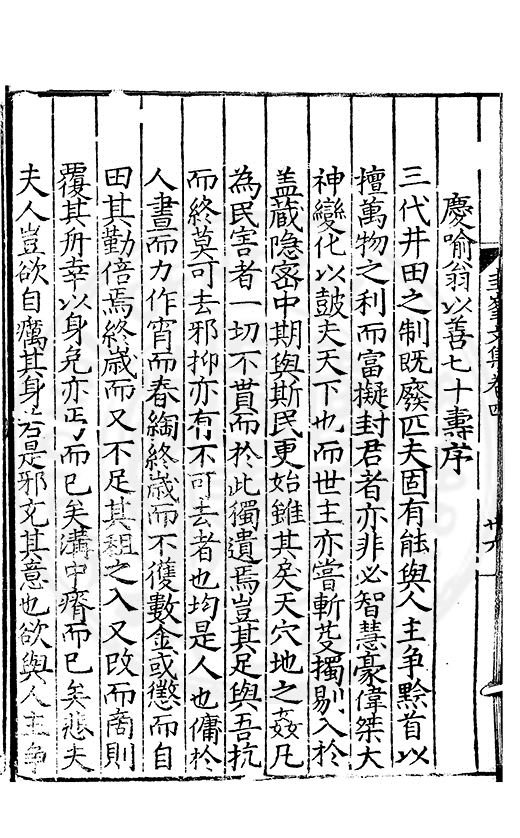 圭峯文集卷四
廿六
慶喻翁以善七十壽序
三代井田之制既廢匹夫固有能與人主爭黔首以
擅萬物之利而富擬封君者亦非必智慧豪偉桀大
神變化以鼓夫天下也而世主亦嘗斬芟擿剔入於
盖藏隐宻中期與斯民更始雖其戾天穴地之姦凡
為民害者一切不貰而於此獨遺焉豈其足與吾抗
而終莫可去邪抑亦有不可去者也均是人也傭於
人晝而力作宵而春綯終歲而不獲數金或懲而自
田其勤倍焉終歲而又不足其租之入又改而商則
覆其舟幸以身免亦丐而已矣溝中瘠而已矣悲夫
夫人豈欲自癘其身若是邪充其意也欲與人主爭